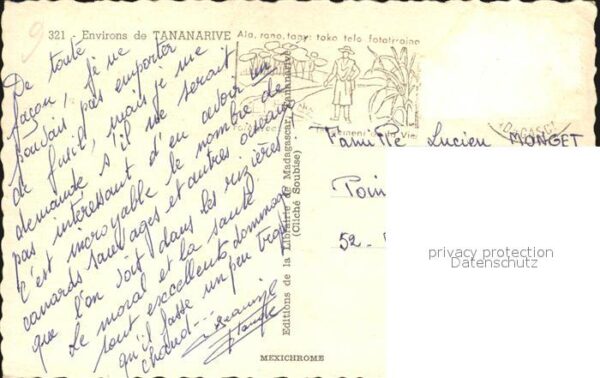 321 - Environs de TANANARIVE
Ala, rano, tany: toko telo fotatraina
De toute
façon, je ne
pouvais pas emporter
de fusil, mais je me
demande s'il ne serait
pas intéressant d'en avoir un
C'est incroyable le nombre de
canards sauvages et autres oiseaux
que l'on voit dans les rizières.
Le moral et la santé
sont excellents, dommage
qu'il fasse un peu trop
chaud...
Editions de la Librairie de Madagascar, Tananarive
(Cliché Soubise)
Famille Lucien MONGET
Poin
52 -
privacy protection
Datenschutz
MEXICHROME